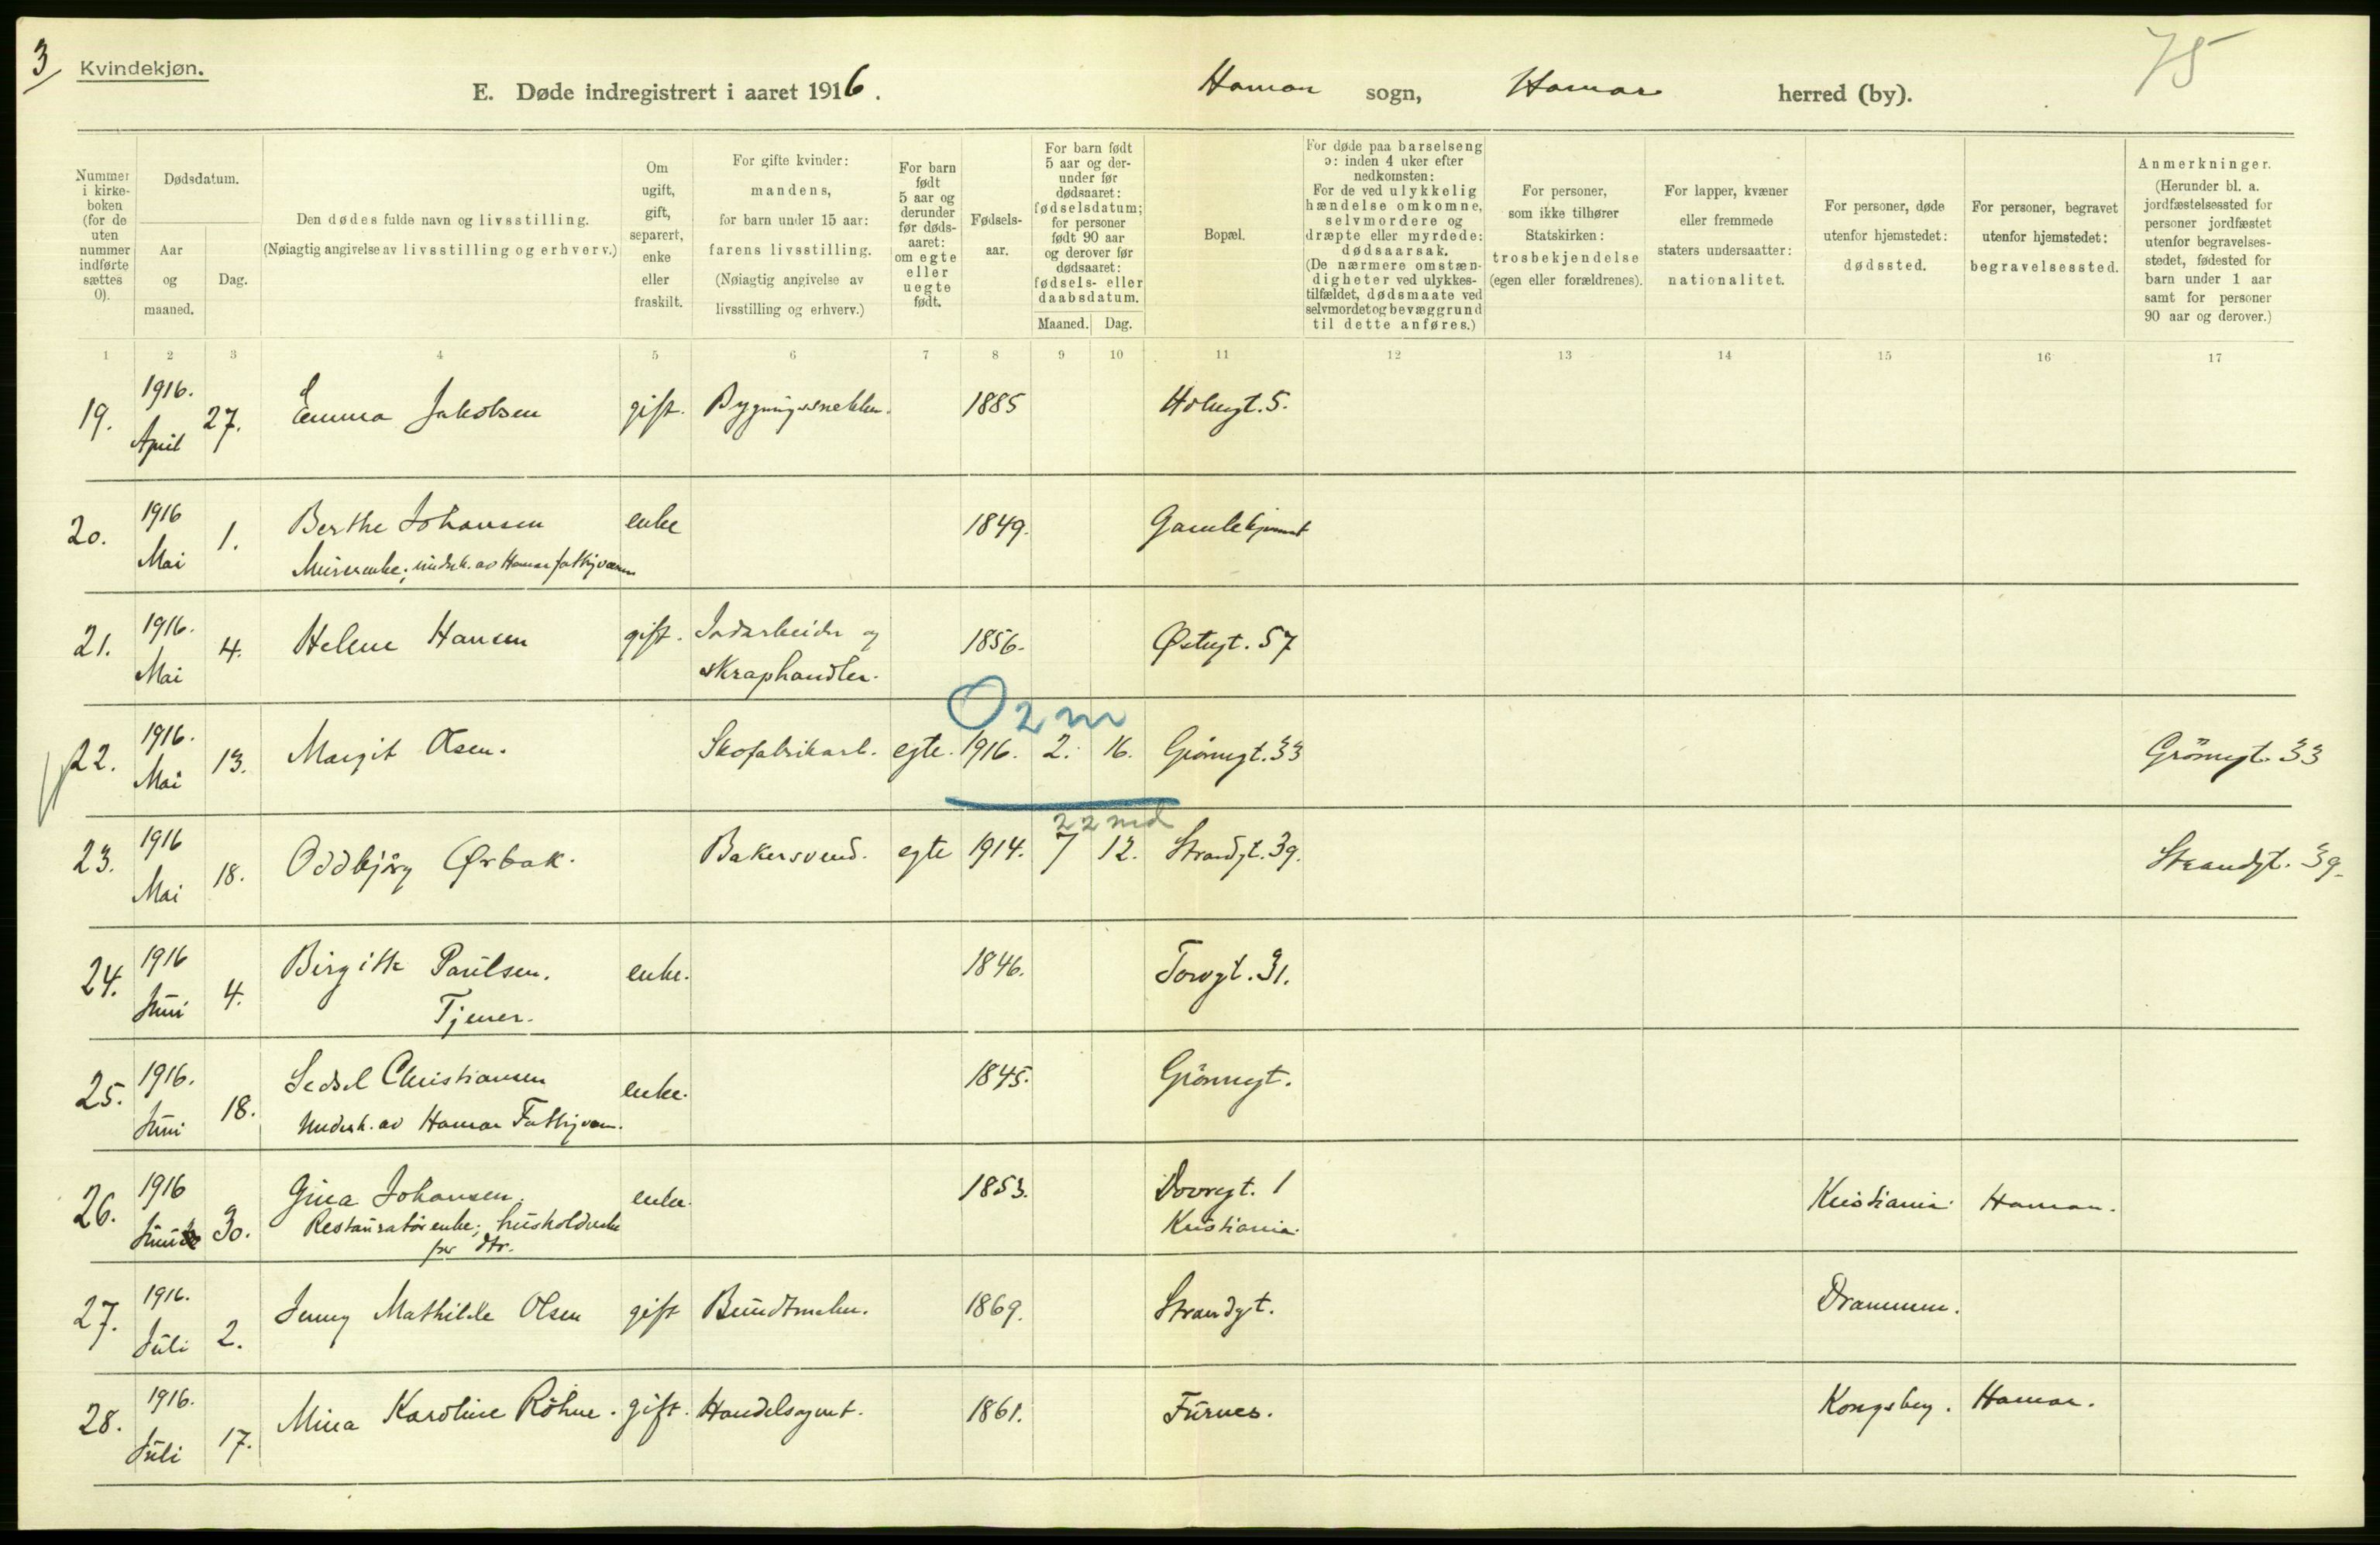 3
Kvindekjøn.
75
E. Døde indregistrert i aaret 1916.
Hamar sogn, Hamar herred (by).
Nummer i kirke-boken (for de uten nummer indførte sættes 0).
Dødsdatum.
Aar og maaned.
Dag.
Den dødes fulde navn og livsstilling.
(Nøiagtig angivelse av livsstilling og erhverv.)
Om ugift, gift, separert, enke eller fraskilt.
For gifte kvinder: mandens, for barn under 15 aar: farens livsstilling. (Nøiagtig angivelse av livsstilling og erhverv.)
For barn født 5 aar og derunder før døds-aaret: om egte eller uegte født.
Fødsels-aar.
For barn født 5 aar og der-under før dødsaaret: fødselsdatum; for personer født 90 aar og derover før dødsaaret: fødsels- eller daabsdatum.
Maaned. Dag.
Bopæl.
For døde paa barselseng ɔ: inden 4 uker efter nedkomsten: For de ved ulykkelig hændelse omkomne, selvmordere og dræpte eller myrdede: dødsaarsak. (De nærmere omstæn-digheter ved ulykkes-tilfældet, dødsmaate ved selvmordet og bevæggrund til dette anføres.)
For personer, som ikke tilhører Statskirken: trosbekjendelse (egen eller forældrenes).
For lapper, kvæner eller fremmede staters undersaatter: nationalitet.
For personer, døde utenfor hjemstedet: dødssted.
For personer, begravet utenfor hjemstedet: begravelsessted.
Anmerkninger. (Herunder bl. a. jordfæstelsessted for personer jordfæstet utenfor begravelses-stedet, fødested for barn under 1 aar samt for personer 90 aar og derover.)
1 2 3 4 5 6 7 8 9 10 11 12 13 14 15 16 17
19. 1916. April 27. Emma Jakobsen gift. Bygningssnekker. 1885 Holsgt. 5.
20. 1916 Mai 1. Berthe Johansen enke 1849. Gamlehjemmet
Murerenke; underh. av Hamar fattigvæsen
21. 1916. Mai 4. Helene Hansen gift. Jodarbeider og 1856. Østregt. 57
skraphandler.
0 2 m
22. 1916. Mai 13. Margit Olsen. Skofabrikarb. egte. 1916. 2. 16. Grönnegt. 33 Grönnegt. 33
22 md
23. 1916 Mai 18. Oddbjörg Ørbak. Bakersvend. egte 1914. 7 12. Strandgt. 39. Strandgt. 39.
24. 1916 Juni 4. Birgitte Paulsen. enke. 1846. Torvgt. 31.
Tjener.
25. 1916. Juni 18. Sedsel Christiansen enke. 1845. Grönnegt.
Underh. av Hamar Fattigvæs.
26. 1916 Juni 30. Gina Johansen. enke. 1853. Dovregt. 1 Kristiania. Kristiania. Hamar.
Restauratörenke; husholderske
for dtr.
27. 1916. Juli 2. Jenny Mathilde Olsen gift Bundtmaker. 1869. Strandgt. Drammen.
28. 1916. Juli 17. Mina Karoline Röhne. gift. Handelsagent. 1861. Furnes. Kongsberg. Hamar.